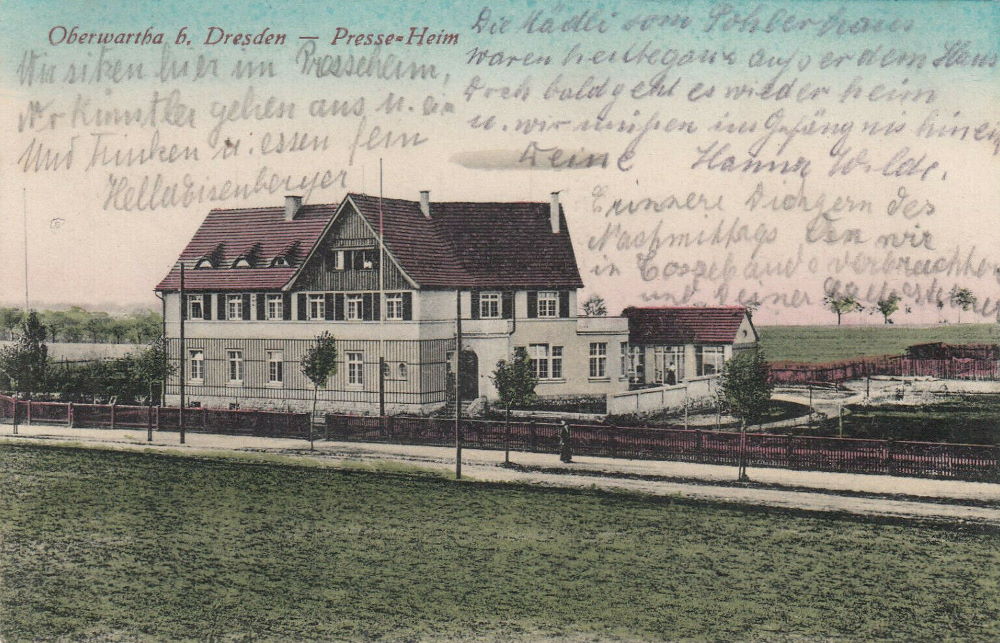 Oberwartha b. Dresden — Presse=Heim
Wir sitzen hier im Presseheim,
Künstler gehen aus u. ein
Und Trinken u. essen fein
Hella Eisenberger
Die Mädli vom
waren heute ganz außer dem Haus
Doch bald geht es wieder heim
u. wir müßen ins Gefängnis hinein
Deine Hanna Wilde.
Erinnere Dich gern des
Nachmittags den wir
in verbrachten
und Deiner